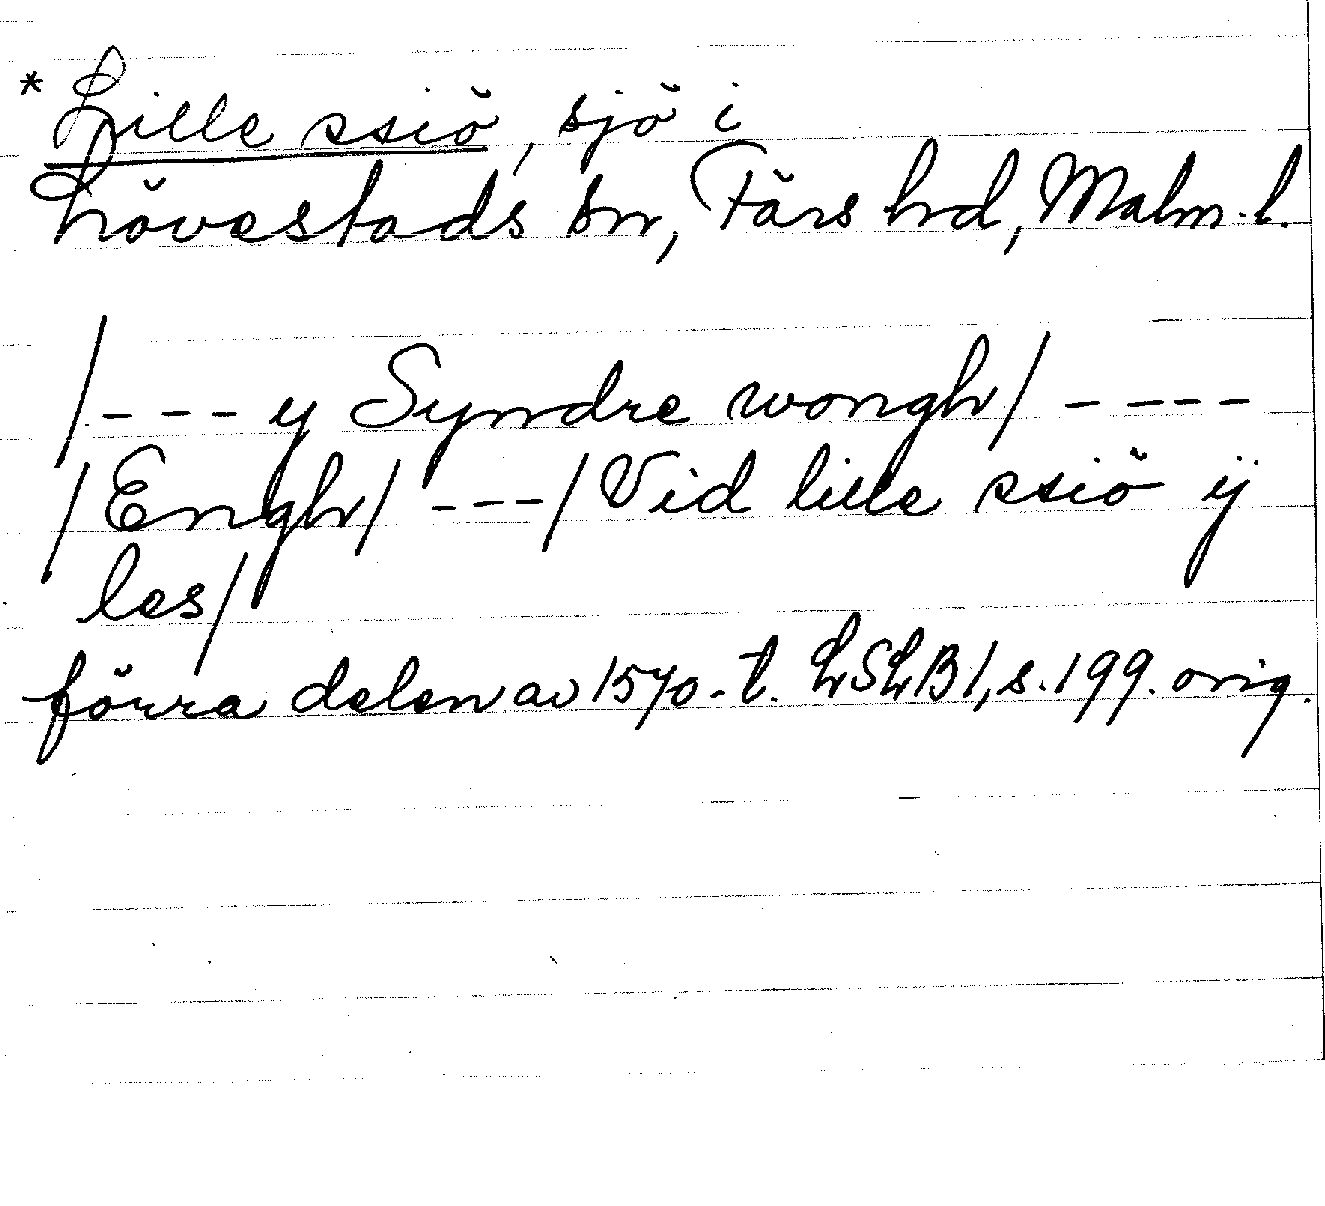 * Lille ssiö, sjö i
Lövestads sn, Färs hd, Malm. l.
/ - - - y Syndre wongh / - - - -
/ Engh / - - - / Vid lille ssiö ij
les /
förra delen av 1570-t. LSLB 1, s. 199. orig.